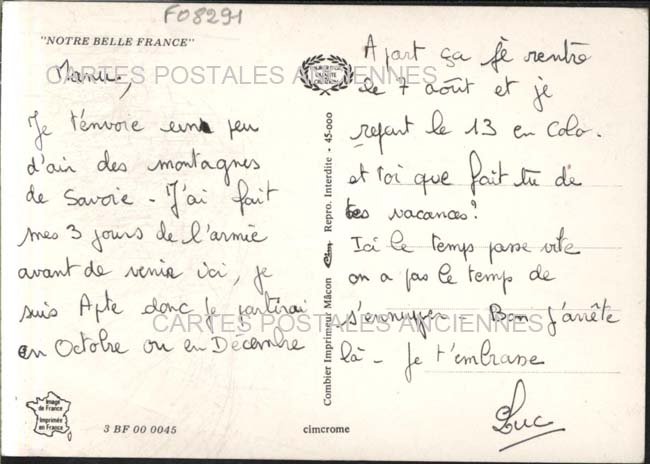 F08291
"NOTRE BELLE FRANCE"
Manu,
Je t'envoie un peu
d'air des montagnes
de Savoie - J'ai fait
mes 3 jours de l'armée
avant de venir ici, je
suis Apte donc je partirai
en Octobre ou en Décembre
A part ça je rentre
le 7 août et je
repart le 13 en Colo.
et toi que fait tu de
tes vacances?
Ici le temps passe vite
on a pas le temps de
s'ennuyer - Bon j'arrête
là - Je t'embrasse
Luc
CARTES POSTALES ANCIENNES
CARTES POSTALES ANCIENNES
Combier Imprimeur Mâcon Cim Repro. Interdite - 45-000
Image
de France
Imprimée
en France
3 BF 00 0045
cimcrome